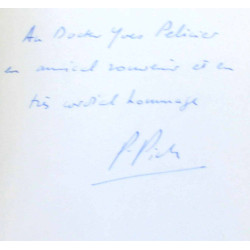 Au Docteur Yves Pelicier
en amical souvenir et en
très cordial hommage
P. Pich